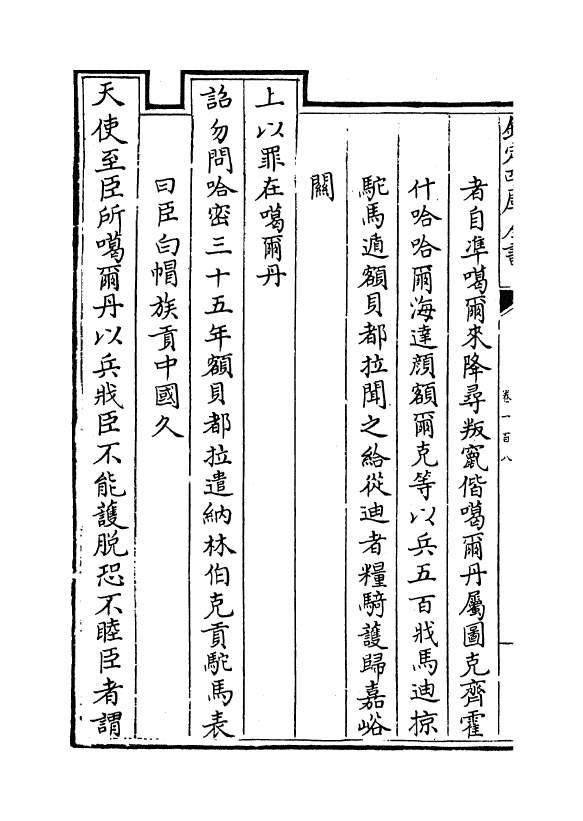 欽定四庫全書
卷一百八
者自準噶爾來降尋叛竄偕噶爾丹屬圖克齊霍
什哈哈爾海達顔額爾克等以兵五百戕馬迪掠
駝馬遁額貝都拉聞之給從迪者糧騎護歸嘉峪
關
上以罪在噶爾丹
詔勿問哈密三十五年額貝都拉遣納林伯克貢駝馬表
曰臣白帽族貢中國久
天使至臣所噶爾丹以兵戕臣不能護脱恐不睦臣者謂